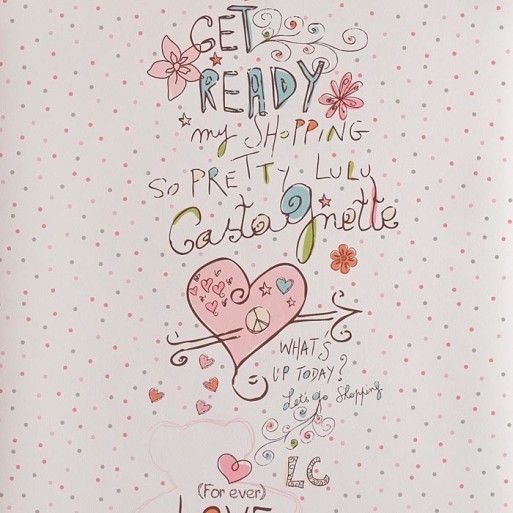 GET
READY
my SHOPPING
SO PRETTY LULU
Castagnette
WHAT'S
UP TODAY?
Let's go Shopping
LC
(For ever)
LOVE